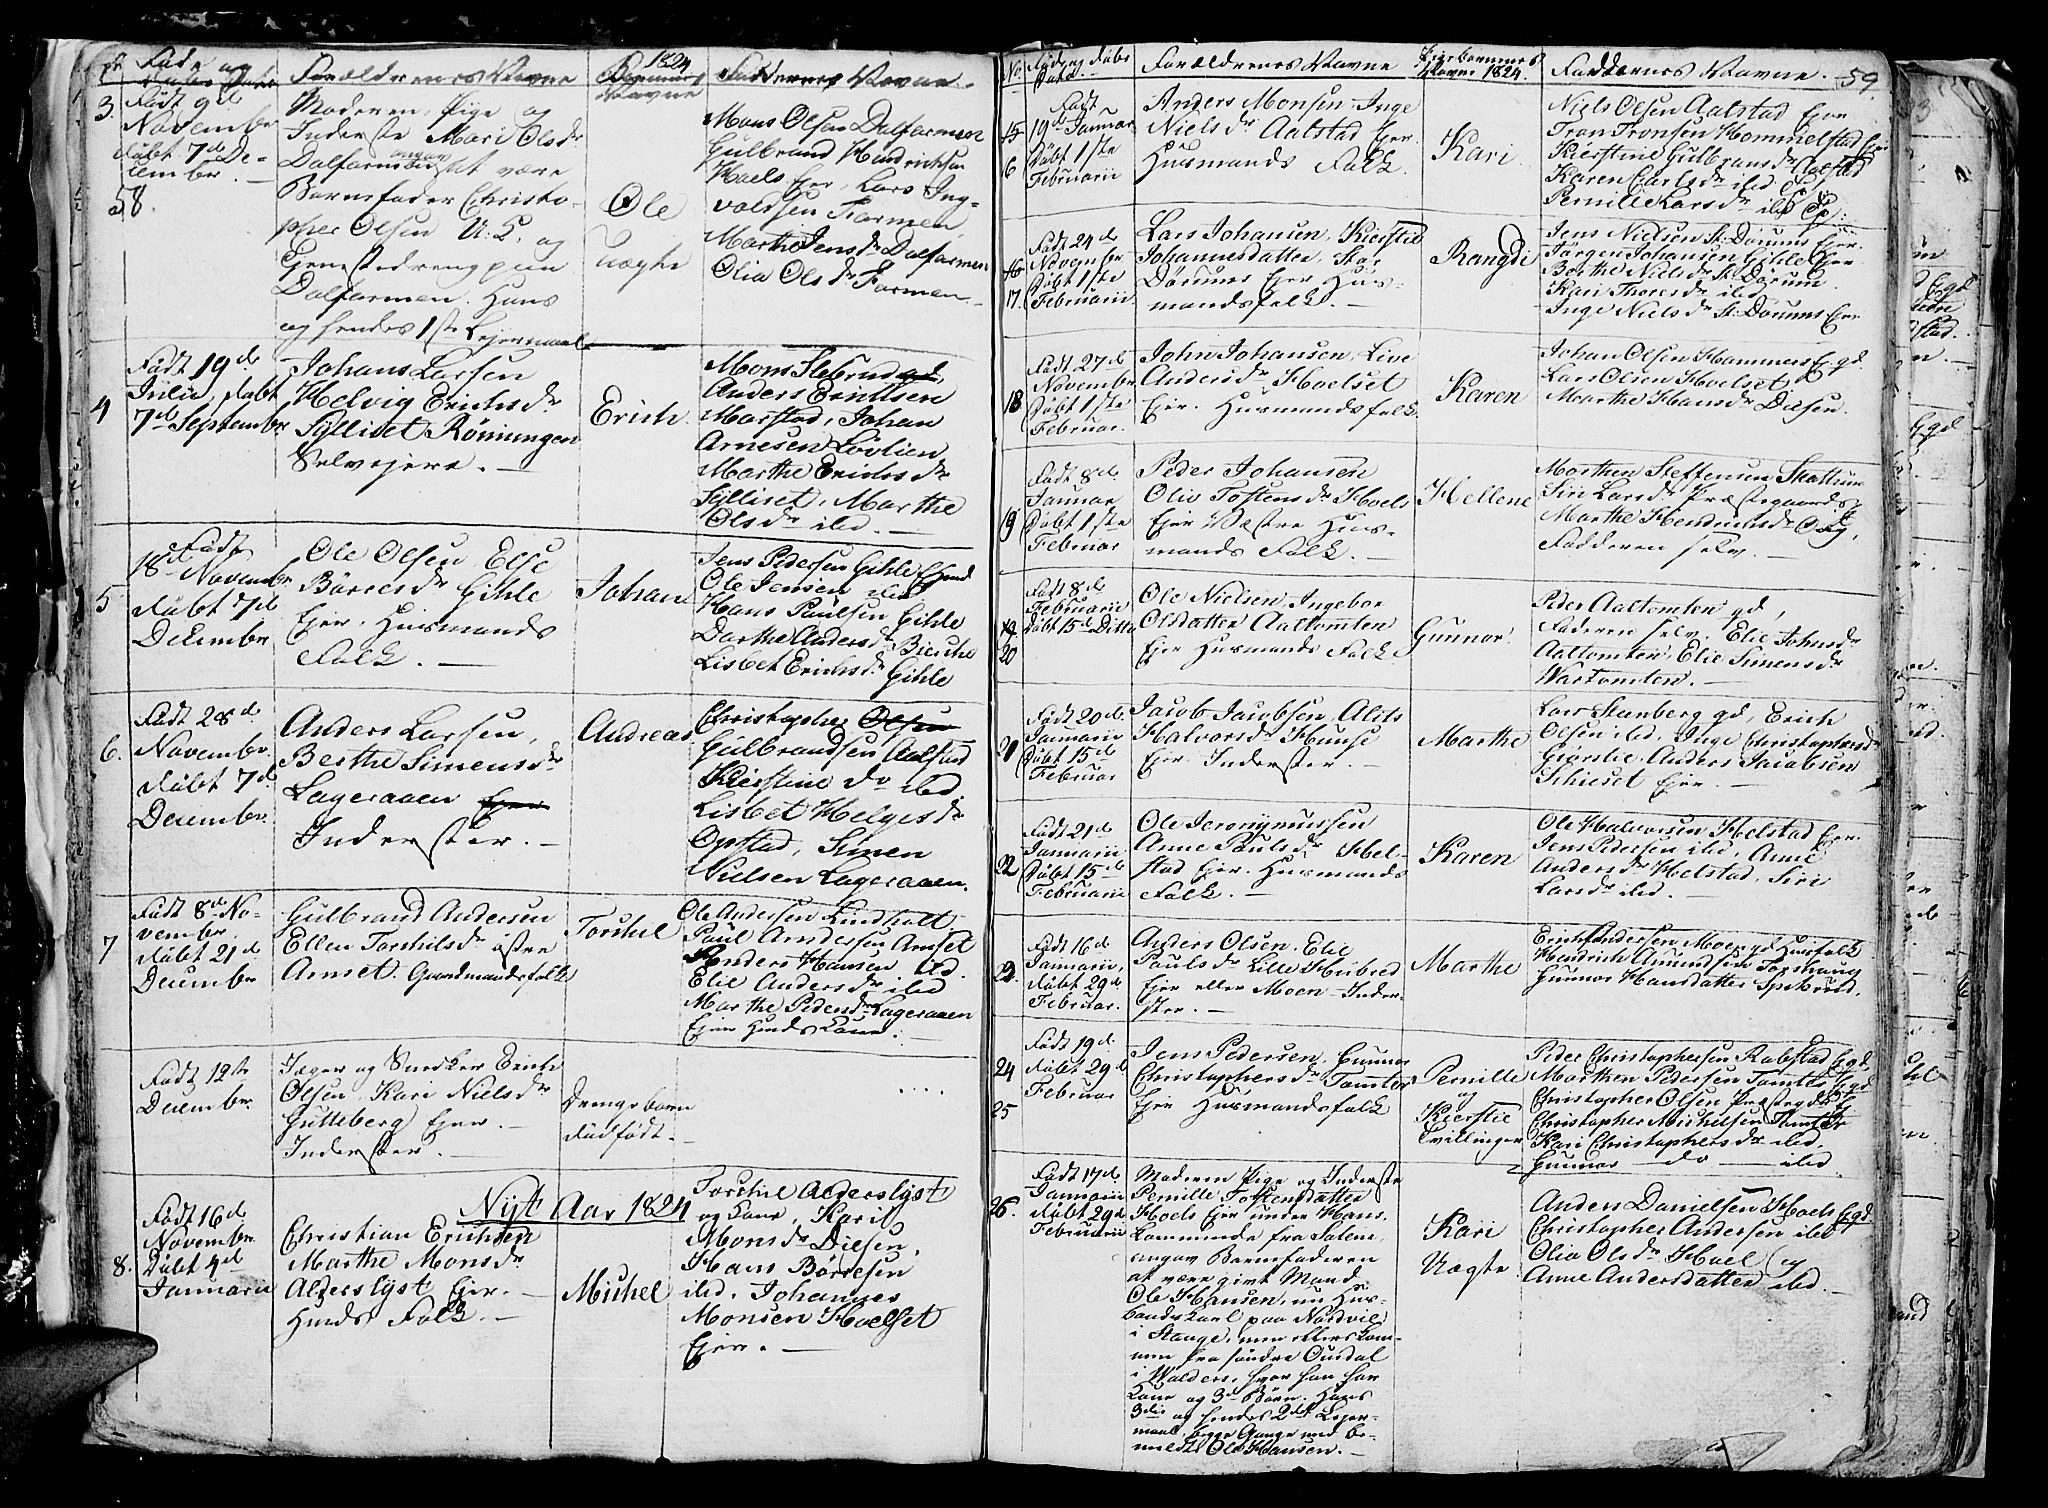 Föde og
Forældrenes Navne
1824
Faddernes Navne
3.
Födt 9d
November
döbt 7d De-
cember. —
58.
Moderen, Pige og
Inderste Mari Olsdr
Dalfarm
angav at være
Barnefader Christo-
pher Olsen U: G. og
Tjenestedreng paa
Dalfarmen. Hans
og hendes 1ste Lejermaal
Ole
Uægte
Mons Olsen Dalfarmen
Gulbrand Hendrichsen
Hoels Ejer, Lars Ing-
valdsen Farmen,
Marthe Jensdr Dalfarmen
Olia Olsdr Farmen. —
4
Födt 19de
Julii, döbt
7d September
Johans Larsen
Helvig Erichsdr
Sylliset Rönningen
Selvejere. —
Erich.
Mons Stebrud gd,
Anders Erichsen
Marstad, Johan
Arnesen Lövlien
Marthe Erichsdr
Sylliset, Marthe
Olsdr ibd. —
5
Födt
18d November
döbt 7d
December
Ole Olsen Else
Börresdr Gihle
Ejer. Huusmands
Folk. —
Johan
Jens Pedersen Gihle
Ole Jensen ibd
Hans Paulsen Gihle
Dorthe Andersdr Bierche
Lisbet Erichsdr Gihle
6.
Födt 28d
November
döbt 7d
December
Anders Larsen,
Berthe Simensdr
Lageraaen Ejer
Inderster. —
Andreas
Christopher Olsen
Gulbrandsen Aalstad
Kierstine do ibd
Lisbet Helgesdr
Opstad, Simen
Nielsen Lageraaen.
7
Födt 8de No-
vember
döbt 21d
December
Gulbrand Andersen
Ellen Torchilsdr östre
Arnset. Gaardmandsfolk
Torchel
Ole Andersen Lindholt
Paul Andersen Arnset
Anders Hansen ibd.
Elie Andersdr ibd
Marthe Pedersdr Lageraaen
Ejer Huuskone.
Födt 12te
December
Jæger og Snedker Erich
Olsen, Kari Nielsdr
Gutteberg Ejer. —
Inderster. —
Drengebarn
dödfödt. —
Nyt Aar 1824
8.
Födt 16d
November
Döbt 4d
Januarii
Christian Erichsen
Marthe Monsdr
Alderslyst Ejer. —
Huuds Folk. —
Michel
Torchil Alderslyst
og Kone, Kari
Monsdr Diesen,
Hans Börresen
ibd, Johannes
Monsen Hoelset
Ejer. —
No
Forældrenes Navne
Navne 1824.
Faddernes Navne. — 59.
15
6
Födt
19d Januar
Döbt 1ste
Februarii
Anders Monsen, Inge
Nielsdr Aalstad Ejer.
Huusmands Folk.
Kari
Niels Olsen Aalstad Ejer
Tron Tronsen Hommelstad Ejer
Kierstine Gulbransdr Aalstad
Karen Carlsdr ibd
Pernille Larsdr ibd
16
17.
Födt 24d
November
Döbt 1ste
Februarii
Lars Johansen, Kierstie
Johannesdatter, Stor
Dörums Ejer Huus-
mandsfolk. —
Rangdi
Jens Nielsen St: Dörums Ejer.
Jörgen Johansen Gihle Ejer
Berthe Nielsdr St: Dörum
Kari Thoresdr ibd
Inge Nielsdr St: Dörums Ejer
18
Födt 27d
November
Döbt 1ste
Februar.
John Johansen, Live
Andersdr Hoelset
Ejer. Huusmandsfolk
Karen
Johan Olsen Hammers Egd.
Lars Olsen Hoelset
Marthe Hansdr Diesen.
19
Födt 8d
Januar
Döbt 1ste
Februar
Peder Johansen
Oliv Tostensdr Hoels
Ejer Væstre Huus-
mands Folk. —
Hellene
Morthen Steffensen Skattum
Siri Larsdr Præstegaards
Marthe
Fadderen selv. —
19
20
Födt 8d
Februarii
Döbt 15d Ditto
Ole Nielsen, Ingebor
Olsdatter Aaltomten
Ejer Huusmands Folk
Gunnor
Peder Aaltomten gd,
Faderen selv. Elie Johnsdr
Aaltomten, Elie Simensdr
Wartomten. —
21
Födt 20d
Januarii
Döbt 15d
Februar
Jacob Jacobsen, Alits
Halvorsdr Hunse
Ejer Inderster. —
Marthe
Lars Stenberg gd, Erich
Olsen ibd, Inge Christophersdr
Giörslie, Anders Jacobsen
Schieset Ejer. —
22
Födt 21d
Januarii
Döbt 15d
Februarii
Ole Jeronymussen
Anne Paulsdr Hel-
stad Ejer. Huusmands
Folk. —
Karen
Ole Halvorsen Helstad Ejer.
Jens Pedersen ibd, Anne
Andersdr Helstad, Siri
Larsdr ibd. —
23.
Födt 16d
Januarii,
döbt 29d
Februar.
Anders Olsen. Elie
Paulsdr Lille Hubred
Ejer eller Moen Inder-
ster. —
Marthe
Erich Andersen Moen gd Huusfolk
Hendrich Amundsen Torshaug
Gunnor Hansdatter Spikrud.
24
25
Födt 19d
döbt 29d
Februar
Jens Pedersen, Gunnor
Christophersdr Tomter
Ejer Huusmandsfolk
Pernille
og
Kierstie
Tvillinger
Peder Christophersen Rabstad Egd
Morthen Pedersen Tomter Egd
Christopher Olsen Præstegd
Christopher Michelsen Tomter
Kari Christophersdr ibd.
Gunnor — do — ibd.
26.
Födt 17d
Januarii
döbt 29d
Februarii
Moderen Pige og Inderste
Pernille Tostensdatter
Hoels Ejer under Hans
komminde fra Salem,
angav Barnefaderen
at være givt Mand
Ole Hansen, nu Huus-
bondskarl paa Nordvie
i Stange, men ellers kom-
men fra söndre Ourdal
i Walders, hvor han har
Kone og 3d Börn. Hans
3die og hendes 2det Lejer-
maal, begge Gange med be-
meldte Ole Hansen. —
Kari
Uægte
Anders Danielsen Hoels Egd
Christopher Andersen ibd
Olia Olsdr Hoel og
Anne Andersdatter ibd. —